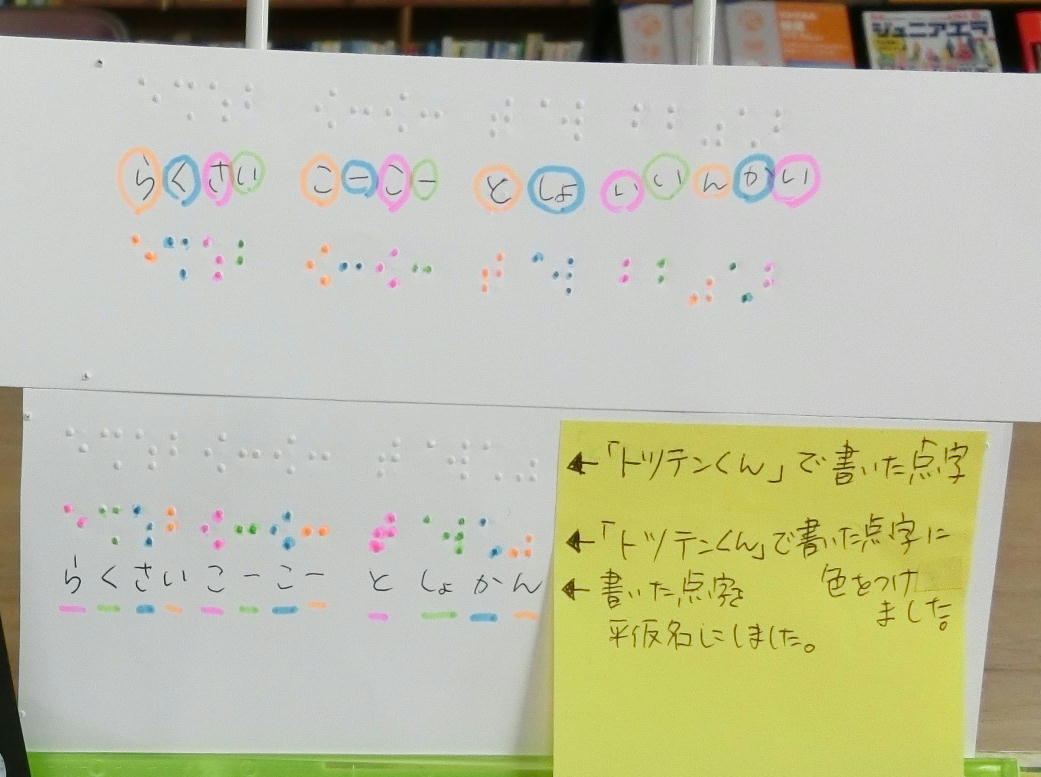 ジュニアエラ
らくさい こーこー としょ いいんかい
らくさいこーこー としょかん
←「トツテンくん」で書いた点字
←「トツテンくん」で書いた点字に
色をつけ
ました。
←書いた点字を
平仮名にしました。